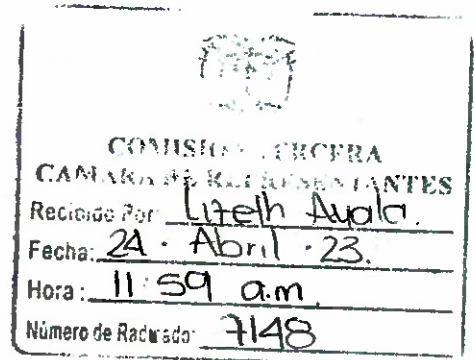 COMISION TERCERA
CAMARA DE REPRESENTANTES
Recibido Por: Lizeth Ayala.
Fecha: 24 · Abril · 23.
Hora: 11:59 a.m
Número de Radicado: 7148